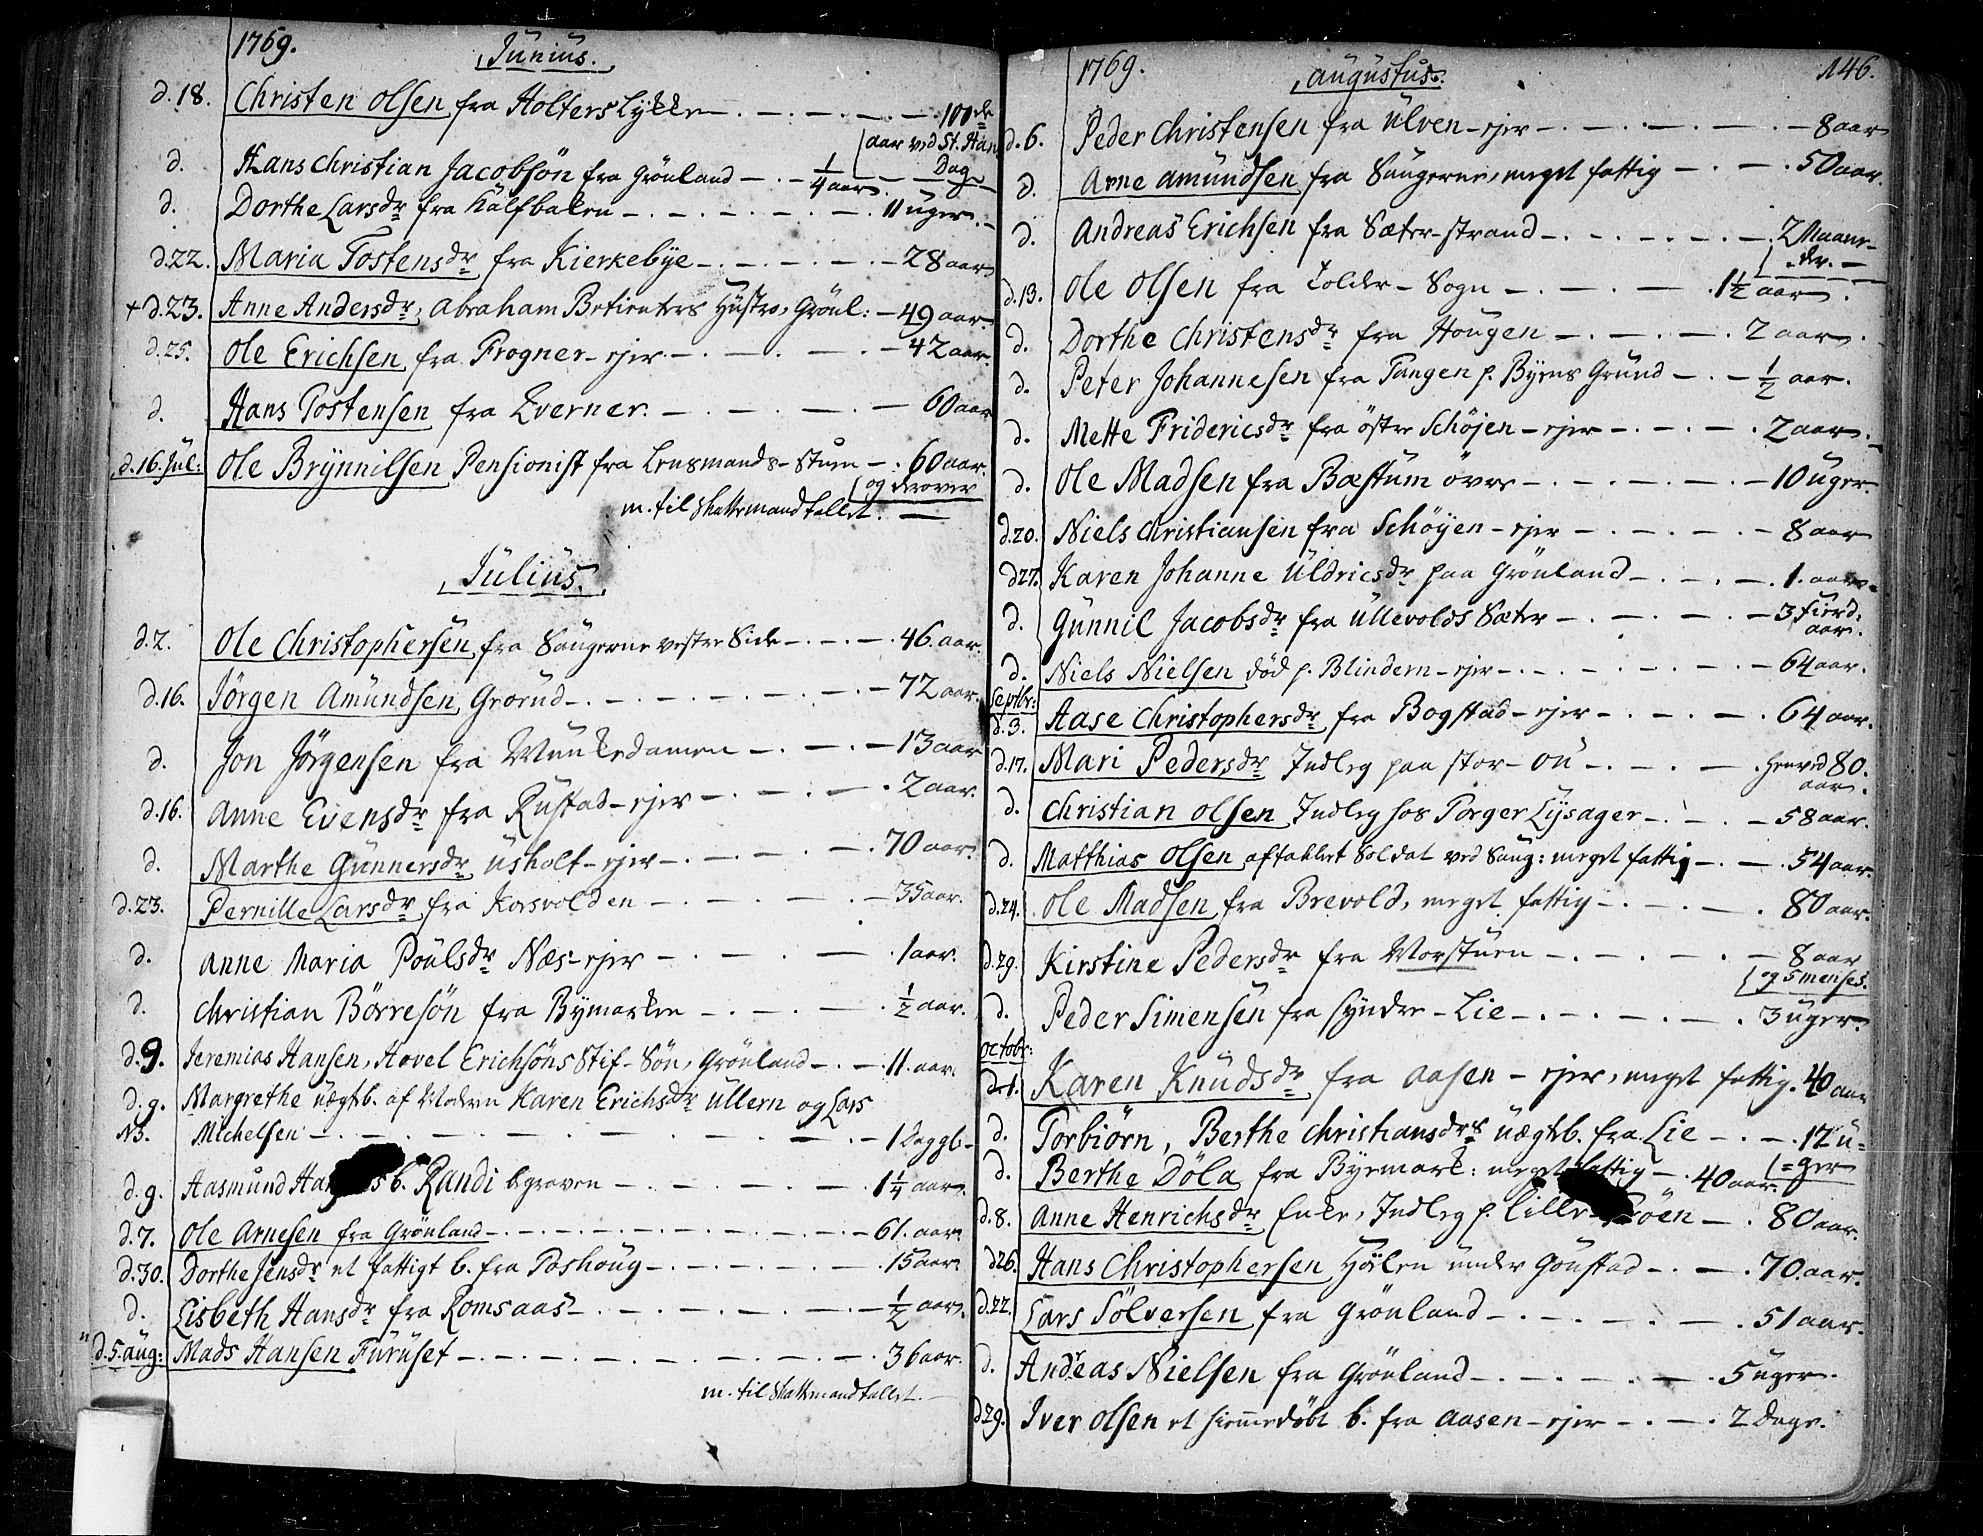 1769. Junius.
d.18. Christen Olsen fra Holterslykke — 100de
aar ved St. Hans
Dag
d. Hans Christian Jacobsön fra Grönland — 1/4 aar.
d. Dorthe Larsdr fra Kalfbaken — 11 uger.
d.22. Maria Tostensdr fra Kierkebÿe — 28 aar
+ d.23. Anne Andersdr, Abraham Betienters Hustro, Grönl: — 49 aar.
d.25. Ole Erichsen fra Frogner-ejer — 42 aar
d. Hans Tostensen fra Kverner. — 60 aar
d.16. Jul: Ole Brÿnnilsen Pensionist fra Lensmands-Stuen — 60 aar.
og derover
m. til Skattemandtallet. —
Julius.
d.2. Ole Christophersen fra Saugerne vestre Side — 46 aar.
d.16. Jörgen Amundsen Grorud — 72 aar.
d. Jon Jörgensen fra Munkedamen — 13 aar
d.16. Anne Evensdr fra Rustad-ejer — 2 aar.
d. Marthe Gunnersdr Usholt-ejer — 70 aar.
d.23. Pernille Larsdr fra Korsvolden — 35 aar.
d. Anne Maria Poulsdr Næs-ejer — 1 aar.
d. Christian Börresön fra Bymarken — 1/2 aar.
d.9. Jeremias Hansen, Hovel Erichsöns Stif-Sön, Grönland — 11 aar.
d.9. Margrethe uægtb. af Moderen Karen Erichsdr Ullern og Lars
NB. Michelsen — 1 Dag gl.
d.9. Aasmund Han s b. Randi begraven — 1 1/4 aar.
d.7. Ole Arnesen fra Grönland — 61. aar.
d.30. Dorthe Jensdr et fattigt b. fra Poshoug — 15 aar.
d. Lisbeth Hansdr fra Romsaas — 1/2 aar.
"d.5. aug: Mads Hansen Furuset — 36 aar.
m. til Skattemandtallet. —
1769. Augustus. 146.
d.6. Peder Christensen fra Ulven-ejer — 8 aar
d. Arne Amundsen fra Saugerne, meget fattig — 50 aar.
d. Andreas Erichsen fra Sæter-strand — 2 Maane-
der. —
d.13. Ole Olsen fra Solder-Sogn — 1 1/2 aar.
d. Dorthe Christensdr fra Hougen — 2 aar.
d. Peter Johannesen fra Tangen p. Byens Grund — 1/2 aar.
d. Mette Fridericsdr fra östre Schöjen-ejer — 2 aar.
d. Ole Madsen fra Bæstum övre — 10 uger.
d.20. Niels Christiansen fra Schöyen-ejer — 8 aar
d27. Karen Johanne Uldricsdr paa Grönland — 1. aar.
d. Gunnil Jacobsdr fra Ullevolds Sæter — 3 fierd:
aar.
d. Niels Nielsen död p. Blindern-ejer — 64 aar.
Septbr:
d.3. Aase Christophersdr fra Bogstad-ejer — 64 aar.
d.17. Mari Pedersdr Indleg paa stor-ou — henved 80.
aar.
d. Christian Olsen Indleg hos Torger Lysager — 58 aar.
d. Matthias Olsen aftakket Soldat ved Saug: meget fattig — 54 aar.
d.24. Ole Madsen fra Brevold, meget fattig — 80 aar.
d.29. Kirstine Pedersdr fra Morstuen — 8 aar
og 5 menses.
d. Peder Simensen fra Syndre-Lie — 3 uger.
Octobr:
d.1. Karen Knudsdr fra Aasen-ejer, meget fattig. 40 aar
d. Torbiörn, Berthe Christiansdrs uægteb. fra Lie — 12 u-
=ger
d. Berthe Döla fra Byemark: meget fattig — 40 aar.
d.8. Anne Henrichsdr Enke, Indleg p. Lille-Fröen — 80 aar.
d26. Hans Christophersen Hölen under Goustad — 70. aar.
d.22. Lars Sölversen fra Grönland — 51 aar.
d. Andreas Nielsen fra Grönland — 5 uger.
d29. Iver Olsen et hiemmedöbt b. fra Aasen-ejer — 2 Dage.